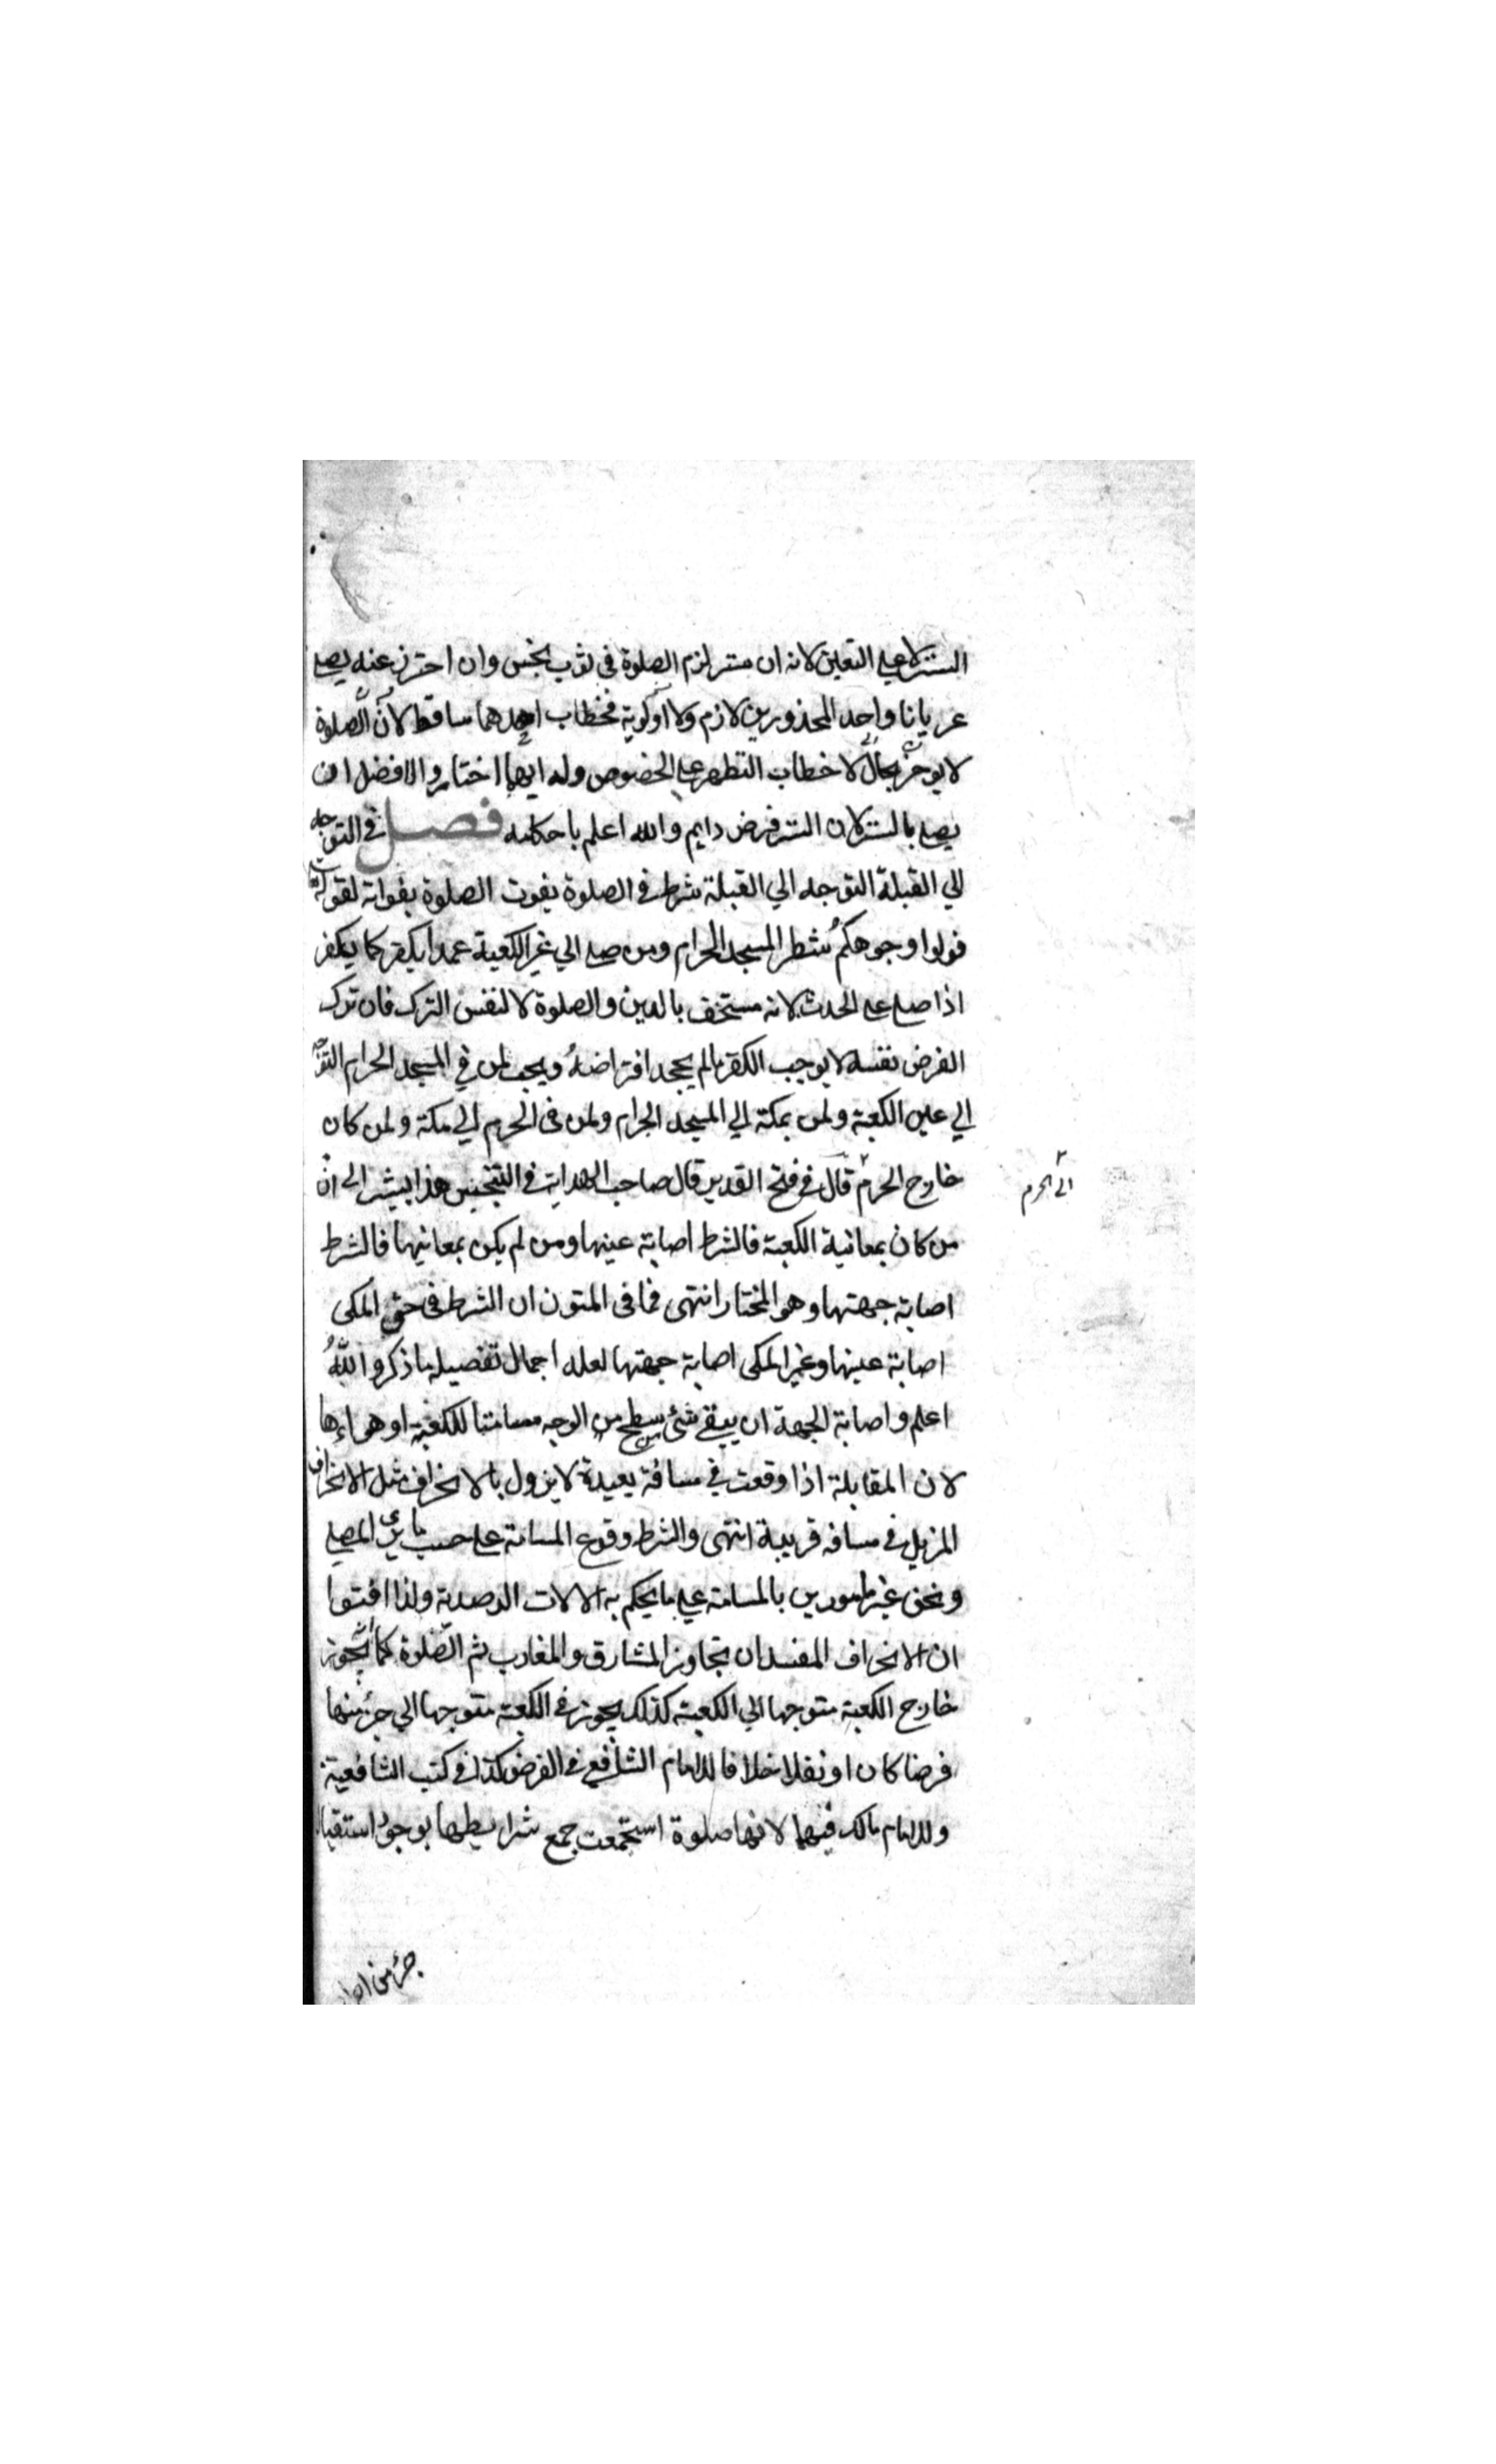 الستر لا علي التعين لانه ان ستر لزم الصلوة في ثوب نجس وان احترز عنه يصلي
عريانا واحد المحذورين لازم ولا اولوية فخطاب احدهما ساقط لان الصلوة
لا يوخر بحال لا خطاب التطهر علي الخصوص وله ايهما اختار والافضل ان
يصلي بالستر لان الستر فرض دايم والله اعلم باحكامه فصل في التوجه
الي القبلة التوجه الي القبلة شرط في الصلوة يفوت الصلوة بفواته لقوله تعا
فولوا وجوهكم شطر المسجد الحرام ومن صلي الي غير الكعبة عمدا يكفر كما يكفر
اذا صلي علي الحدث لانه مستخف بالدين والصلوة لا لنفس الترك فان ترك
الفرض نفسه لا يوجب الكفر ما لم يجحد افتراضه ويجب لمن في المسجد الحرام التوجه
الي عين الكعبة ولمن بمكة الي المسجد الحرام ولمن في الحرم الي مكة ولمن كان
خارج الحرم قال في فتح القدير قال صاحب الهداية في التجنيس هذا يشير الى ان
الى الحرم
من كان بمعانية الكعبة فالشرط اصابة عينها ومن لم يكن بمعانيها فالشرط
اصابة جهتها وهو المختار انتهى فما في المتون ان الشرط في حق المكى
اصابة عينها وغير المكى اصابة جهتها لعله اجمال تفصيله ما ذكر والله
اعلم واصابة الجهة ان يبقي شئ من سطح الوجه مسامتا للكعبة او هواءها
لان المقابلة اذا وقعت في مسافة بعيدة لا يزول بالانحراف مثل الانحراف
المزيل في مسافه قريبة انتهى والشرط وقوع المسامتة علي حسب ما يرى المصلي
ونحن غير مامورين بالمسامتة علي ما يحكم به الالات الرصدية ولذا افتوا
ان الانحراف المفسد ان تجاوز المشارق والمغارب ثم الصلوة كما تجوز
خارج الكعبة متوجها الي الكعبة كذلك يجوز في الكعبة متوجها الي جزء منها
فرضا كان او نفلا خلافا للامام الشافعي في الفرض كذا في كتب الشافعية
وللامام مالك فيهما لانها صلوة استجمعت جمع شرايطها بوجود استقبال
جزء من